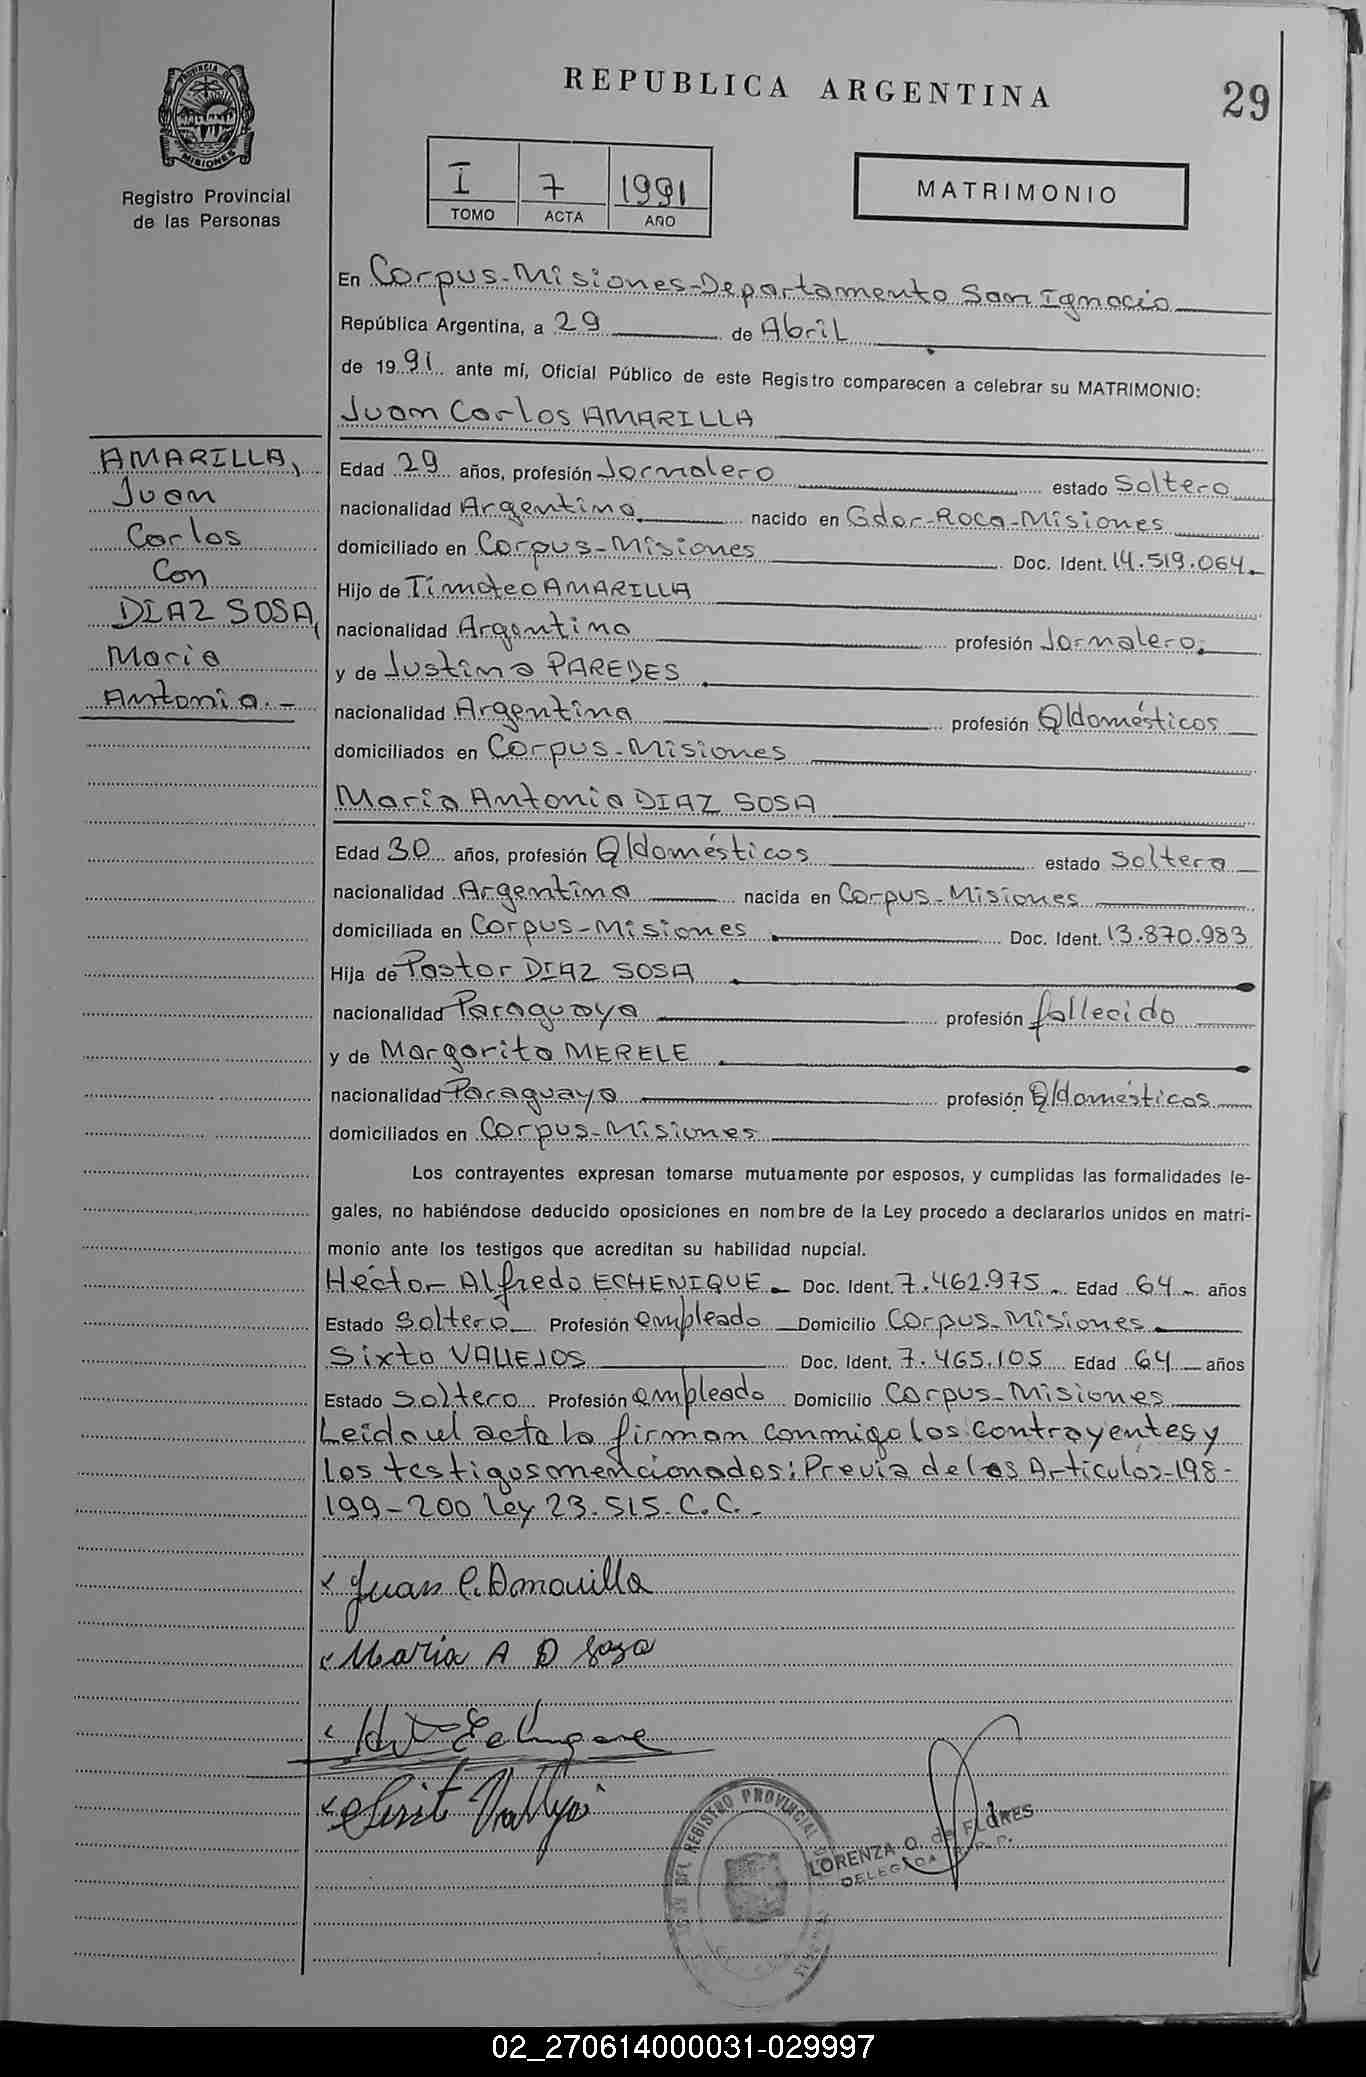 REPUBLICA ARGENTINA
29
PROVINCIA DE
MISIONES
Registro Provincial
de las Personas
I 7 1991
TOMO ACTA AÑO
MATRIMONIO
En Corpus-Misiones-Departamento San Ignacio
República Argentina, a 29 de Abril
de 1991 ante mí, Oficial Público de este Registro comparecen a celebrar su MATRIMONIO:
Juan Carlos AMARILLA
AMARILLA,
Juan
Carlos
Con
DIAZ SOSA,
Maria
Antonia.-
Edad 29 años, profesión Jornalero estado Soltero
nacionalidad Argentina nacido en Gdor-Roca-Misiones
domiciliado en Corpus-Misiones Doc. Ident. 14.519.064.
Hijo de Timoteo AMARILLA
nacionalidad Argentina profesión Jornalero.
y de Justina PAREDES
nacionalidad Argentina profesión Q/domésticos
domiciliados en Corpus-Misiones
Maria Antonia DIAZ SOSA
Edad 30 años, profesión Q/domésticos estado Soltera
nacionalidad Argentina nacida en Corpus-Misiones
domiciliada en Corpus-Misiones Doc. Ident. 13.870.983
Hija de Pastor DIAZ SOSA
nacionalidad Paraguaya profesión fallecido
y de Margarita MERELE
nacionalidad Paraguaya profesión Q/domésticos
domiciliados en Corpus-Misiones
Los contrayentes expresan tomarse mutuamente por esposos, y cumplidas las formalidades le-
gales, no habiéndose deducido oposiciones en nombre de la Ley procedo a declararlos unidos en matri-
monio ante los testigos que acreditan su habilidad nupcial.
Héctor Alfredo ECHENIQUE Doc. Ident. 7.462.975 Edad 64 años
Estado Soltero Profesión empleado Domicilio Corpus-Misiones
Sixto VALLEJOS Doc. Ident. 7.465.105 Edad 64 años
Estado Soltero Profesión empleado Domicilio Corpus-Misiones
Leida el acta la firman conmigo los contrayentes y
los testigos mencionados: Previa de los Artículos-198-
199-200 Ley 23.515. C.C.-
Juan C. Amarilla
Maria A D Sosa
DEL REGISTRO PROVINCIAL
LORENZA O. de FLORES
DELEGADA
02_270614000031-029997